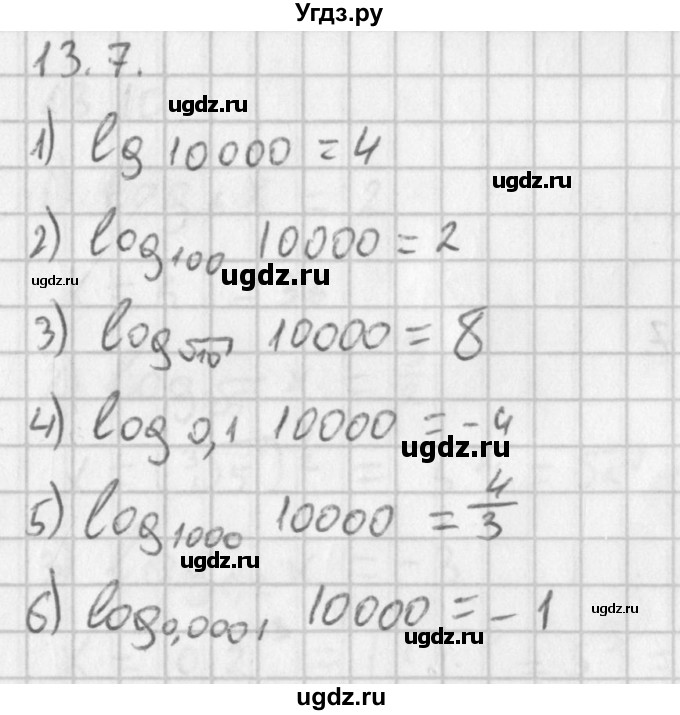 Угдз.ру
13.7.
ugdz.ru
1) lg 10000 = 4
ugdz.ru
2) log₁₀₀ 10000 = 2
ugdz.ru ugdz.ru
3) log_√10 10000 = 8
4) log 0,1 10000 = - 4
ugdz.ru
5) log₁₀₀₀ 10000 = 4/3
ugdz.ru
6) log₀,₀₀₀₁ 10000 = - 1
ugdz.ru
ugdz.ru
ugdz.ru